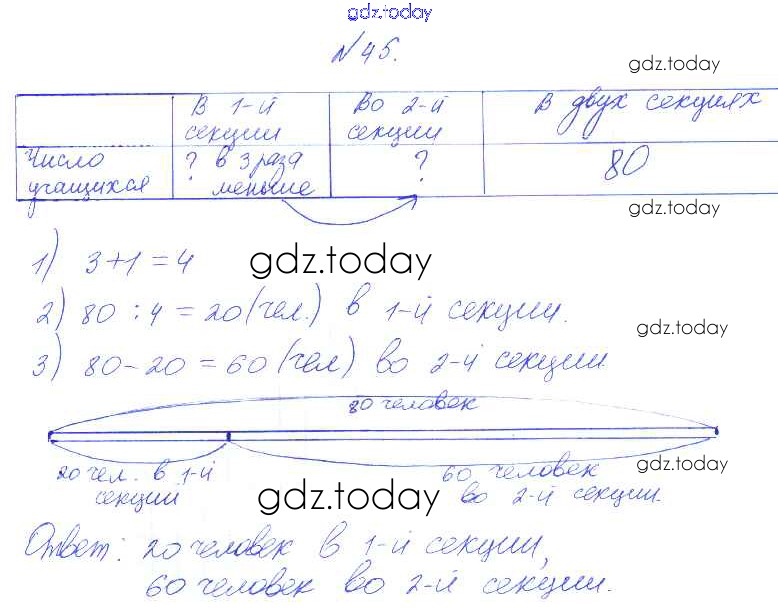 gdz.today
№45.
gdz.today
В 1-й секции
Во 2-й секции
В двух секциях
Число учащихся
? в 3 раза меньше
?
80
gdz.today
1) 3+1=4
gdz.today
2) 80 : 4 = 20 (чел.) в 1-й секции.
gdz.today
3) 80-20 = 60 (чел) во 2-й секции.
80 человек
20 чел. в 1-й секции
60 человек во 2-й секции.
gdz.today
gdz.today
Ответ: 20 человек в 1-й секции,
60 человек во 2-й секции.